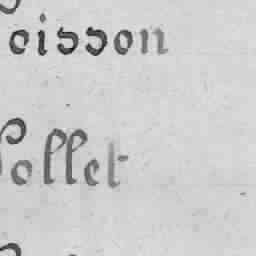 oisson
Pollet